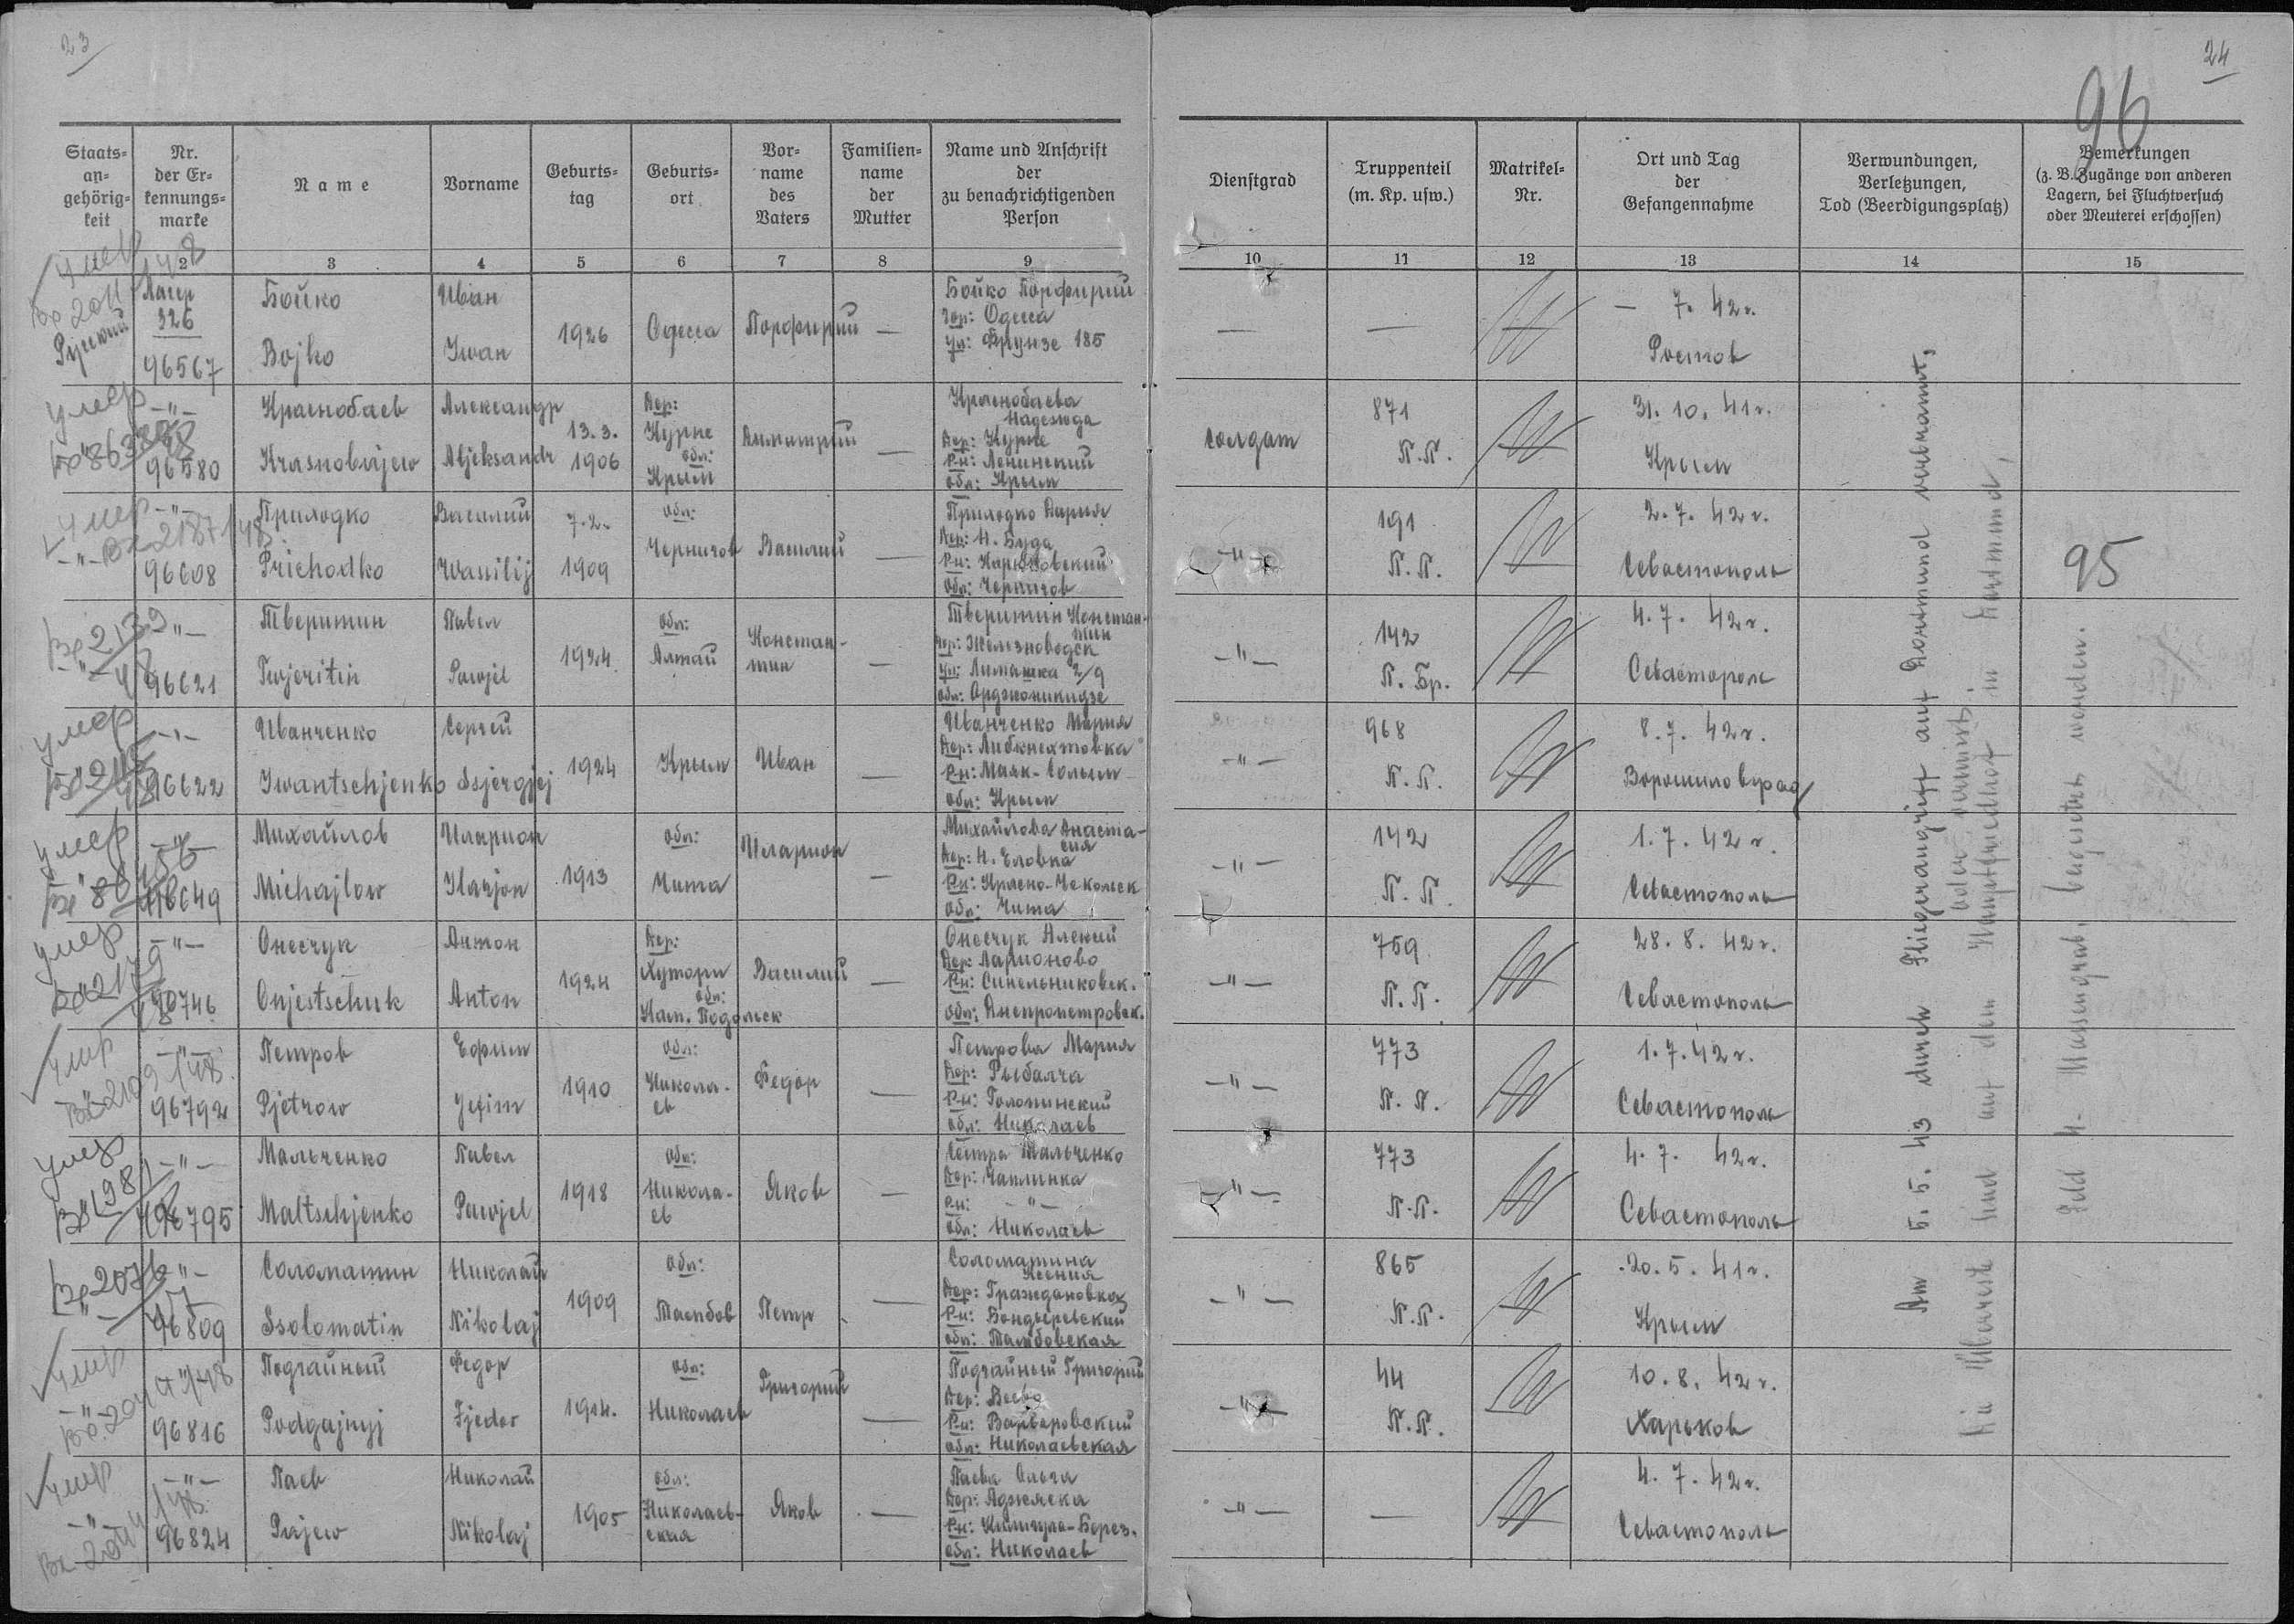 23
24
96
Staats=
an=
gehörig=
keit
Nr.
der Er=
kennungs=
marke
Name
Vorname
Geburts=
tag
Geburts=
ort
Vor=
name
des
Vaters
Familien=
name
der
Mutter
Name und Anschrift
der
zu benachrichtigenden
Person
Dienstgrad
Truppenteil
(m. Kp. usw.)
Matrikel=
Nr.
Ort und Tag
der
Gefangennahme
Verwundungen,
Verletzungen,
Tod (Beerdigungsplatz)
Bemerkungen
(z. B. Zugänge von anderen
Lagern, bei Fluchtversuch
oder Meuterei erschossen)
2 3 4 5 6 7 8 9 10 11 12 13 14 15
умер
Русский
Лагер
326
96567
Бойко Иван
Bojko Iwan
1926
Одесса
Порфирий
—
Бойко Порфирий
гор: Одесса
ул: Фрунзе 185
—
—
— 7. 42г.
Ростов
умер
—"—
96580
Краснобаев Александр
Krasnobajew Aljeksandr
13. 3.
1906
Дер:
Курпе
обл:
Крым
Дмитрий
—
Краснобаева
Надежда
Дер: Курпе
Р-н: Ленинский
обл: Крым
солдат
871
П.П.
31. 10. 41г.
Крым
умер
—"—
96608
Приходко Василий
Prichodko Wassilij
7. 2.
1909
обл:
Чернигов
Василий
Приходко Дария
Дер: Н. Буда
обл: Чернигов
—"—
191
П.П.
2. 7. 42г.
Севастополь
95
Вр 2139
—"—
96621
Тверитин Павел
Twjeritin Pawjel
1924
обл:
Алтай
Констан-
тин
—
Тверитин Констан-
тин
гор: Железноводск
обл: Орджоникидзе
—"—
142
П. Бр.
4. 7. 42г.
Севастополь
умер
—"—
96622
Иванченко Сергей
Iwantschjenko Ssjergjej
1924
Крым
Иван
—
Иванченко Мария
Дер: Либкнехтовка
Р-н: Маяк-Солын
обл: Крым
—"—
968
П.П.
8. 7. 42г.
Ворошиловград
умер
—"—
96649
Михайлов Иларион
Michajlow Ilarjon
1913
обл:
Чита
Иларион
—
Михайлова Анаста-
сия
Дер: Н. Еловка
Р-н: Красно-Чекольск
обл: Чита
—"—
142
П.П.
1. 7. 42г.
Севастополь
умер
—"—
96746
Онесчук Антон
Onjestschuk Anton
1924
Дер:
Хутори
обл:
Кам. Подольск
Василий
—
Онесчук Алексий
Дер: Ларионово
Р-н: Синельниковск.
обл: Днепропетровск.
—"—
759
П.П.
28. 8. 42г.
Севастополь
умер
—"—
96792
Петров Ефим
Pjetrow Jefim
1910
обл:
Никола-
ев
Федор
—
Петрова Мария
Дер: Рыбалча
Р-н: Голопинский
обл: Николаев
—"—
773
П.П.
1. 7. 42г.
Севастополь
умер
—"—
96795
Мальченко Павел
Maltschjenko Pawjel
1918
обл:
Никола-
ев
Яков
—
Сестра Мальченко
Дер: Чаплинка
Р-н: —"—
обл: Николаев
—"—
773
П.П.
4. 7. 42г.
Севастополь
Вр 2076
—"—
96809
Соломатин Николай
Ssolomatin Nikolaj
1909
обл:
Тамбов
Петр
—
Соломатина
Ксения
Дер: Граждановка
Р-н: Бондыревский
обл: Тамбовская
—"—
865
П.П.
20. 5. 41г.
Крым
умер
—"—
96816
Подгайный Федор
Podgajnyj Fjedor
1914.
обл:
Николаев
Григорий
—
Подгайный Григорий
Р-н: Варваровский
обл: Николаевская
—"—
44
П.П.
10. 8. 42г.
Харьков
умер
—"—
96824
Паев Николай
Pajew Nikolaj
1905
обл:
Николаев-
ская
Яков
—
Паева Ольга
Дер: Аджияска
обл: Николаев
—"—
—
4. 7. 42г.
Севастополь
Am 5. 5. 43 durch Fliegerangriff auf Dortmund verbrannt,
oder vermisst.
Die Überreste sind auf dem Hauptfriedhof in Dortmund,
Feld 4. Massengrab, beigesetzt worden.